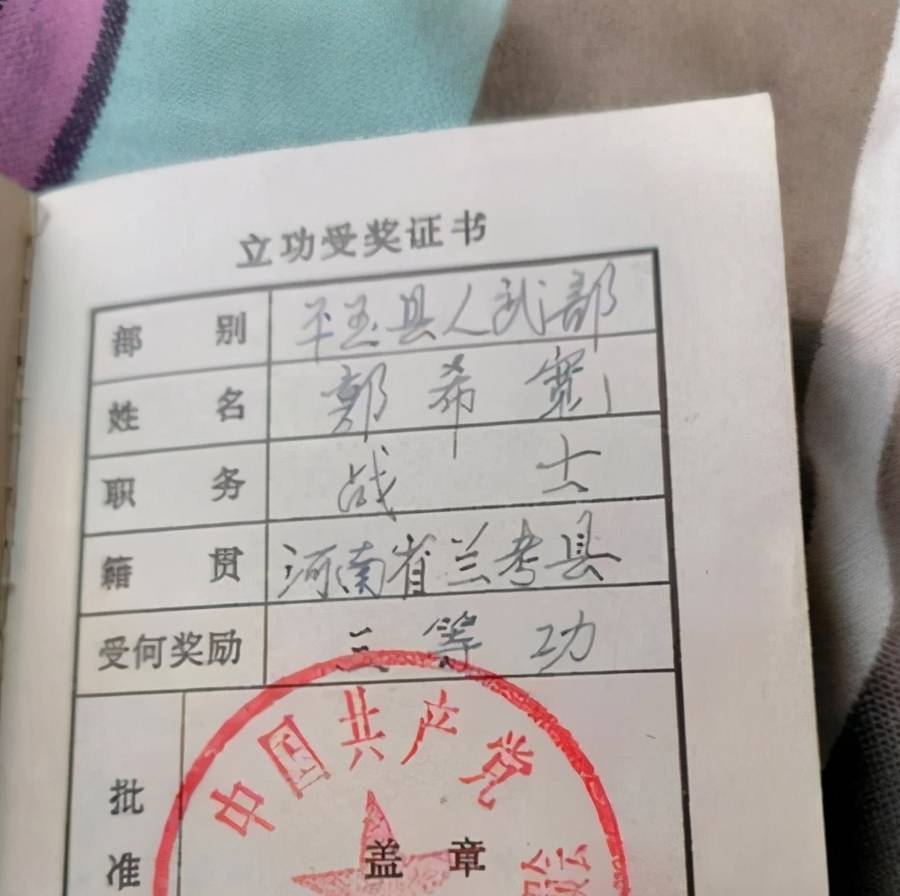 立功受奖证书
部别 平玉县人武部
姓名 郭希宽
职务 战士
籍贯 河南省兰考县
受何奖励 三等功
批准
中国共产党
盖章